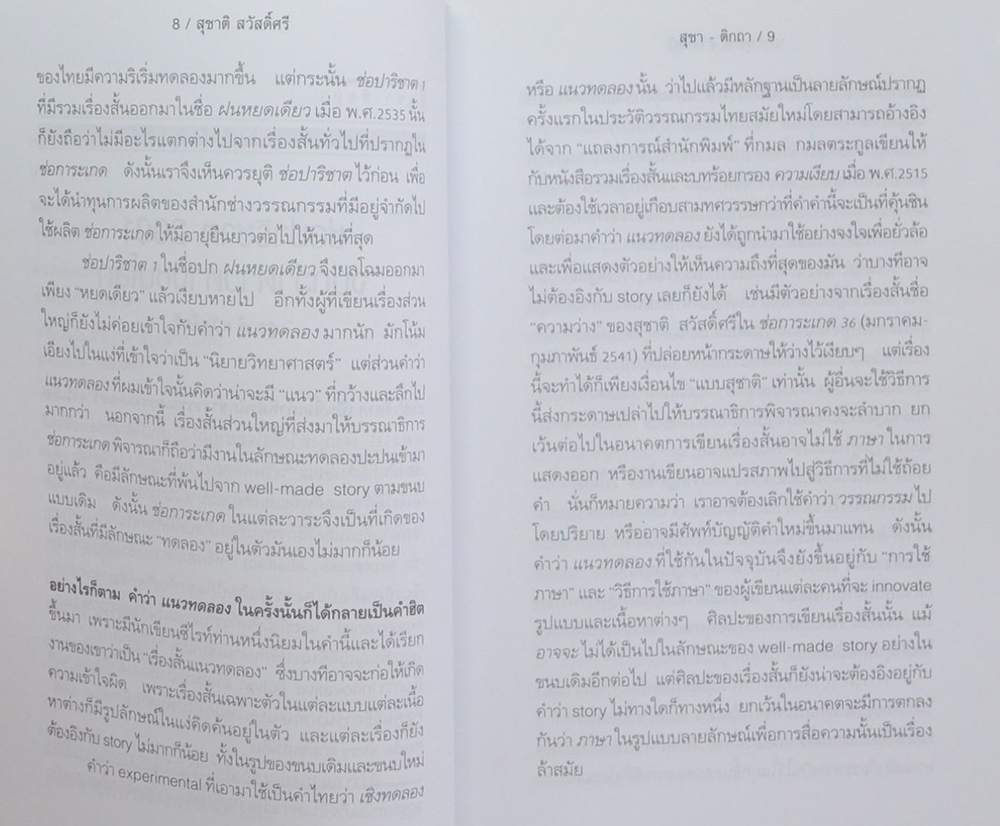 8 / สุชาติ สวัสดิ์ศรี
ของไทยมีความริเริ่มทดลองมากขึ้น แต่กระนั้น ช่อปาริชาต 1
ที่มีรวมเรื่องสั้นออกมาในชื่อ ฝนหยดเดียว เมื่อ พ.ศ.2535 นั้น
ก็ยังถือว่าไม่มีอะไรแตกต่างไปจากเรื่องสั้นทั่วไปที่ปรากฏใน
ช่อการะเกด ดังนั้นเราจึงเห็นควรยุติ ช่อปาริชาต ไว้ก่อน เพื่อ
จะได้นำทุนการผลิตของสำนักช่างวรรณกรรมที่มีอยู่จำกัดไป
ใช้ผลิต ช่อการะเกด ให้มีอายุยืนยาวต่อไปให้นานที่สุด
ช่อปาริชาต 1 ในชื่อปก ฝนหยดเดียว จึงยลโฉมออกมา
เพียง "หยดเดียว" แล้วเงียบหายไป อีกทั้งผู้ที่เขียนเรื่องส่วน
ใหญ่ก็ยังไม่ค่อยเข้าใจกับคำว่า แนวทดลอง มากนัก มักโน้ม
เอียงไปในแง่ที่เข้าใจว่าเป็น "นิยายวิทยาศาสตร์" แต่ส่วนคำว่า
แนวทดลอง ที่ผมเข้าใจนั้นคิดว่าน่าจะมี "แนว" ที่กว้างและลึกไป
มากกว่า นอกจากนี้ เรื่องสั้นส่วนใหญ่ที่ส่งมาให้บรรณาธิการ
ช่อการะเกด พิจารณาก็ถือว่ามีงานในลักษณะทดลองปะปนเข้ามา
อยู่แล้ว คือมีลักษณะที่พ้นไปจาก well-made story ตามขนบ
แบบเดิม ดังนั้น ช่อการะเกด ในแต่ละวาระจึงเป็นที่เกิดของ
เรื่องสั้นที่มีลักษณะ "ทดลอง" อยู่ในตัวมันเองไม่มากก็น้อย
อย่างไรก็ตาม คำว่า แนวทดลอง ในครั้งนั้นก็ได้กลายเป็นคำฮิต
ขึ้นมา เพราะมีนักเขียนซีไรท์ท่านหนึ่งนิยมในคำนี้และได้เรียก
งานของเขาว่าเป็น "เรื่องสั้นแนวทดลอง" ซึ่งบางทีอาจจะก่อให้เกิด
ความเข้าใจผิด เพราะเรื่องสั้นเฉพาะตัวในแต่ละแบบแต่ละเนื้อ
หาต่างก็มีรูปลักษณ์ในแง่คิดค้นอยู่ในตัว และแต่ละเรื่องก็ยัง
ต้องอิงกับ story ไม่มากก็น้อย ทั้งในรูปของขนบเดิมและขนบใหม่
คำว่า experimental ที่เอามาใช้เป็นคำไทยว่า เชิงทดลอง
สุขา - ติกถา / 9
หรือ แนวทดลอง นั้น ว่าไปแล้วมีหลักฐานเป็นลายลักษณ์ปรากฏ
ครั้งแรกในประวัติวรรณกรรมไทยสมัยใหม่โดยสามารถอ้างอิง
ได้จาก "แถลงการณ์สำนักพิมพ์" ที่กมล กมลตระกูลเขียนให้
กับหนังสือรวมเรื่องสั้นและบทร้อยกรอง ความเงียบ เมื่อ พ.ศ.2515
และต้องใช้เวลาอยู่เกือบสามทศวรรษกว่าที่คำคำนี้จะเป็นที่คุ้นชิน
โดยต่อมาคำว่า แนวทดลอง ยังได้ถูกนำมาใช้อย่างจงใจเพื่อยั่วล้อ
และเพื่อแสดงตัวอย่างให้เห็นความถึงที่สุดของมัน ว่าบางทีอาจ
ไม่ต้องอิงกับ story เลยก็ยังได้ เช่นมีตัวอย่างจากเรื่องสั้นชื่อ
"ความว่าง" ของสุชาติ สวัสดิ์ศรีใน ช่อการะเกด 36 (มกราคม-
กุมภาพันธ์ 2541) ที่ปล่อยหน้ากระดาษให้ว่างไว้เงียบๆ แต่เรื่อง
นี้จะทำได้ก็เพียงเงื่อนไข "แบบสุชาติ" เท่านั้น ผู้อื่นจะใช้วิธีการ
นี้ส่งกระดาษเปล่าไปให้บรรณาธิการพิจารณาคงจะลำบาก ยก
เว้นต่อไปในอนาคตการเขียนเรื่องสั้นอาจไม่ใช้ ภาษา ในการ
แสดงออก หรืองานเขียนอาจแปรสภาพไปสู่วิธีการที่ไม่ใช้ถ้อย
คำ นั่นก็หมายความว่า เราอาจต้องเลิกใช้คำว่า วรรณกรรม ไป
โดยปริยาย หรืออาจมีศัพท์บัญญัติคำใหม่ขึ้นมาแทน ดังนั้น
คำว่า แนวทดลอง ที่ใช้กันในปัจจุบันจึงยังขึ้นอยู่กับ "การใช้
ภาษา" และ "วิธีการใช้ภาษา" ของผู้เขียนแต่ละคนที่จะ innovate
รูปแบบและเนื้อหาต่างๆ ศิลปะของการเขียนเรื่องสั้นนั้น แม้
อาจจะ ไม่ได้เป็นไปในลักษณะของ well-made story อย่างใน
ขนบเดิมอีกต่อไป แต่ศิลปะของเรื่องสั้นก็ยังน่าจะต้องอิงอยู่กับ
คำว่า story ไม่ทางใดก็ทางหนึ่ง ยกเว้นในอนาคตจะมีการตกลง
กันว่า ภาษา ในรูปแบบลายลักษณ์เพื่อการสื่อความนั้นเป็นเรื่อง
ล้าสมัย